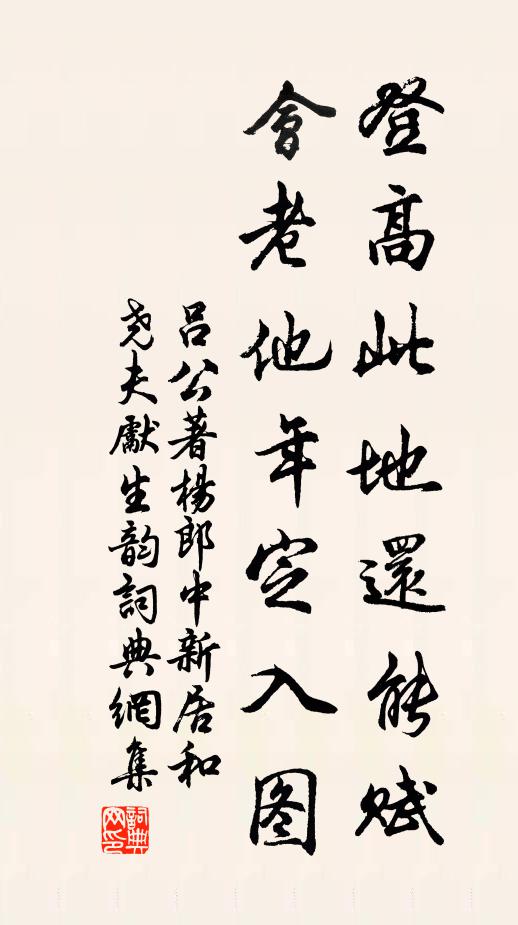 登高此地還能賦
會老他年定入图
吕公著楊郎中新居和
尧夫獻生韵詞典網集
詞典网印